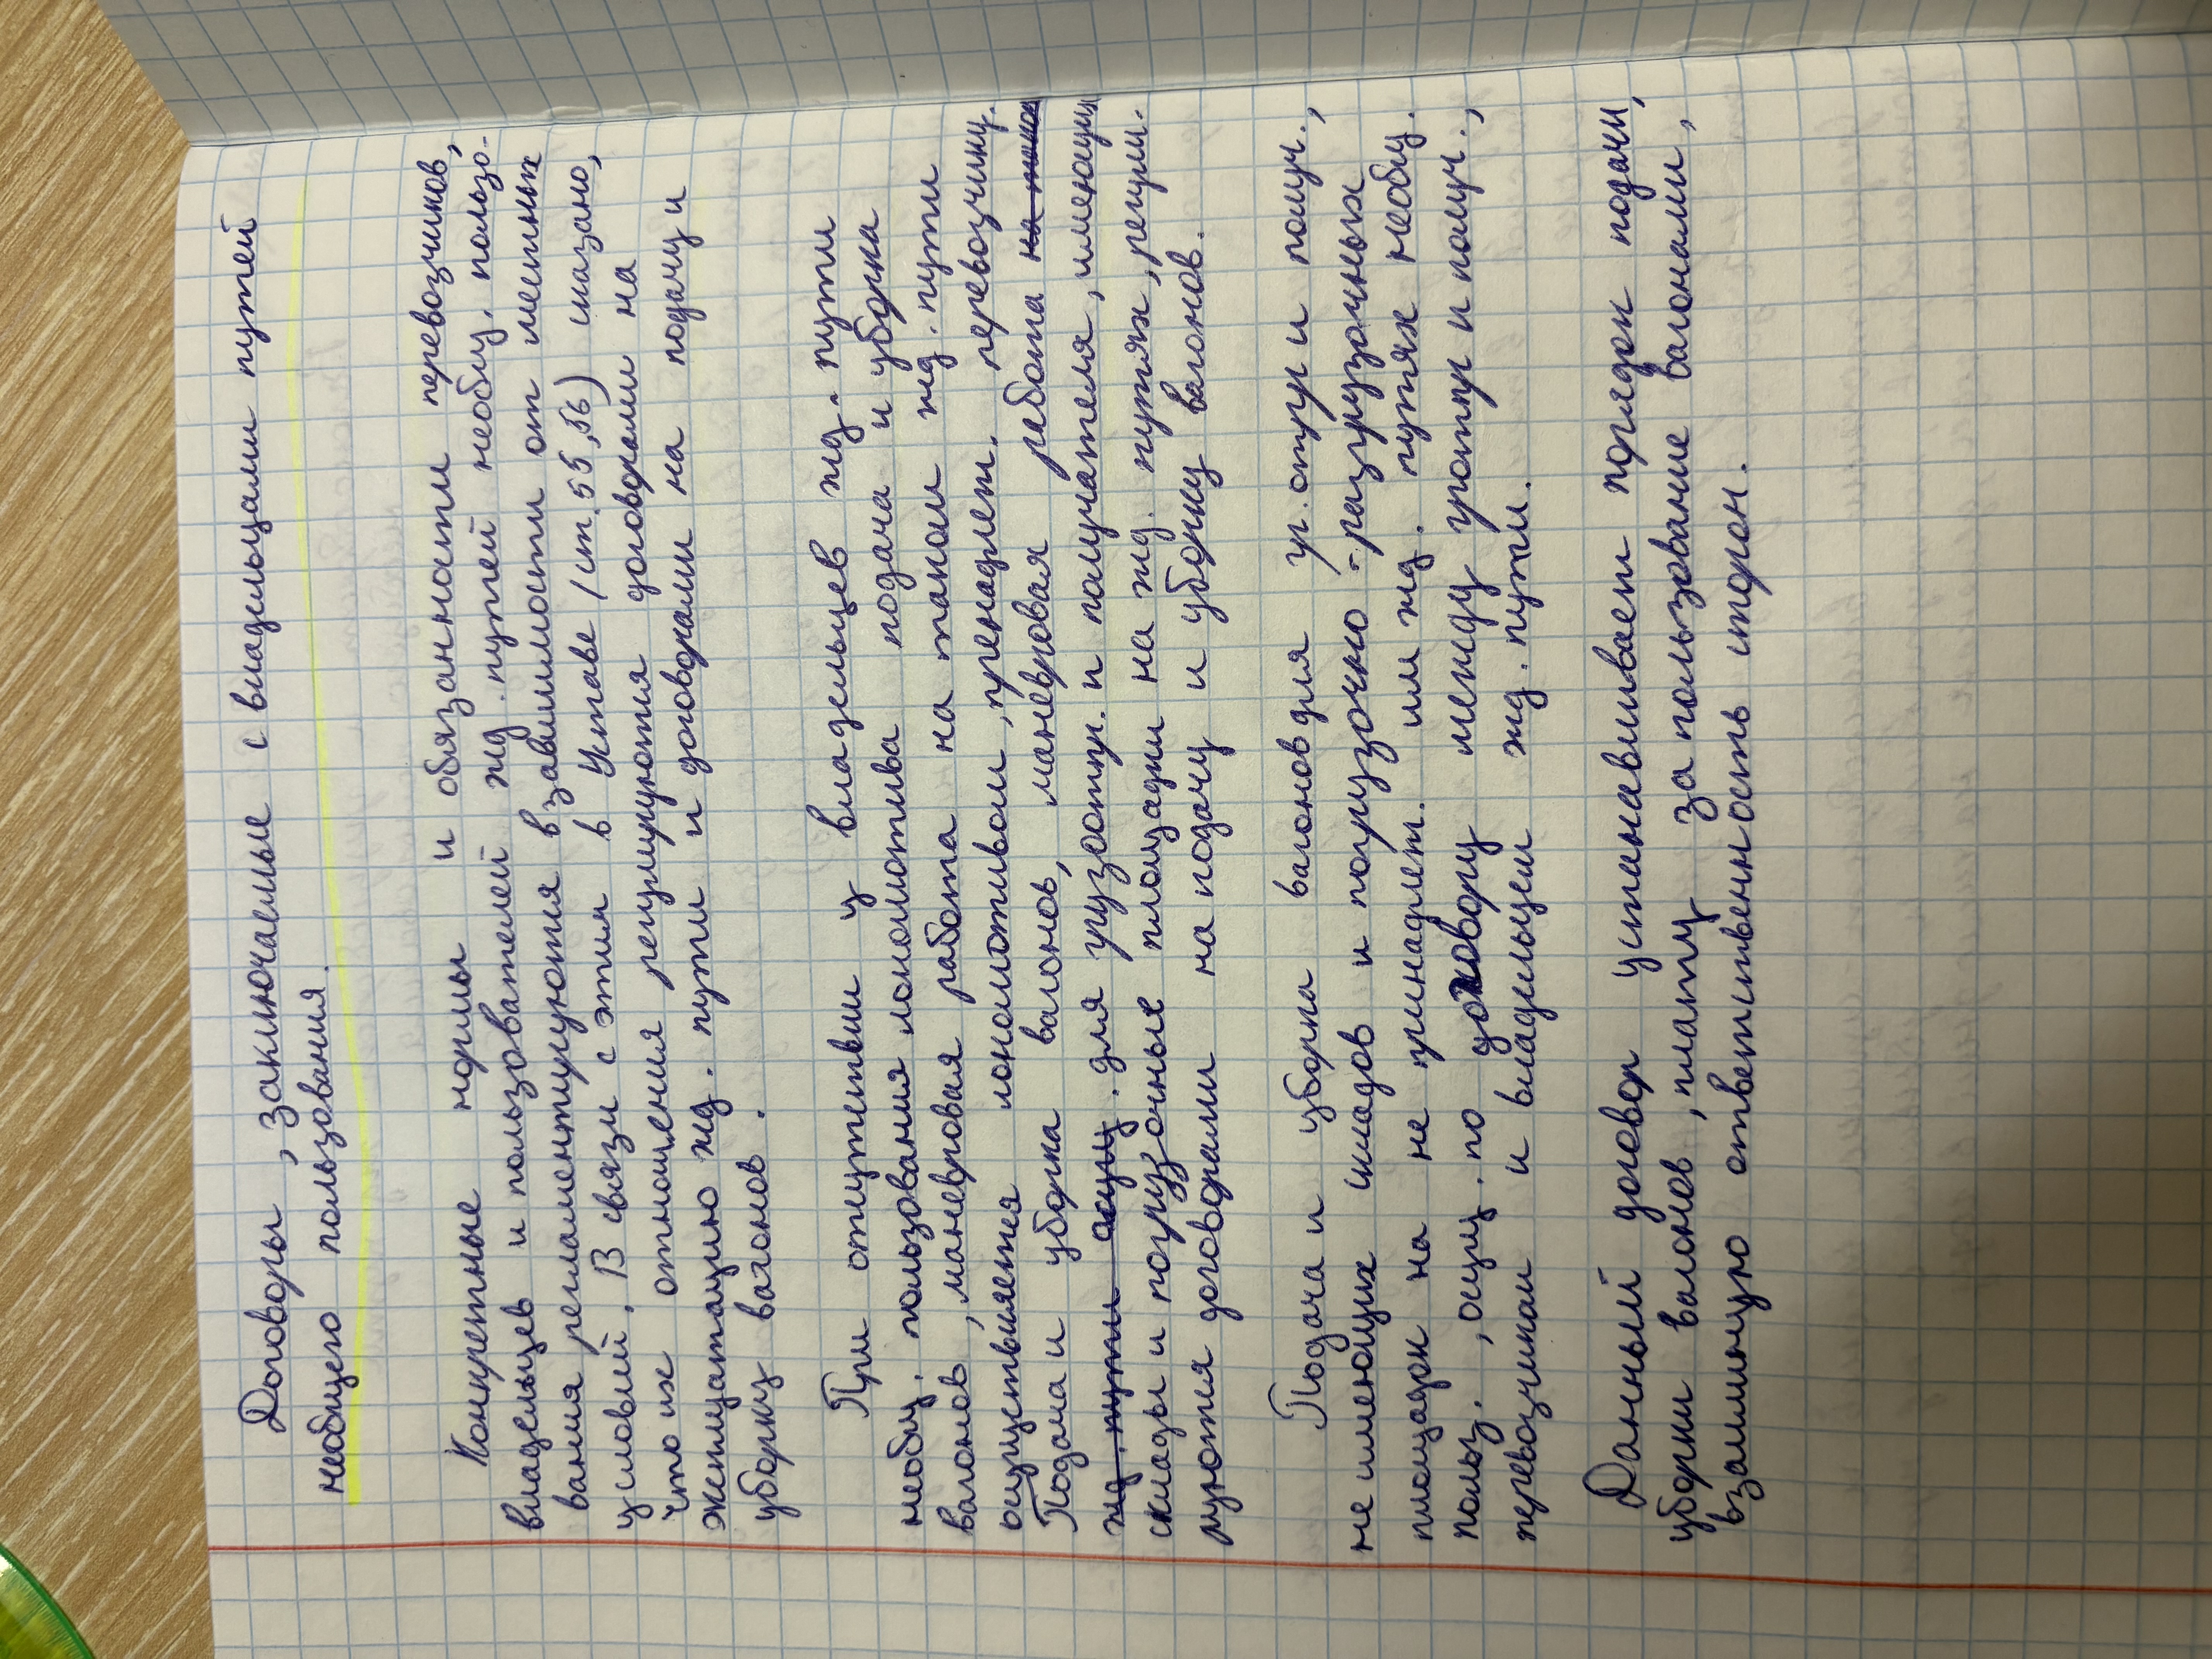 Договоры, заключаемые с владельцами путей
необщего пользования.
Конкретные нормы и обязанности перевозчиков,
владельцев и пользователей жд. путей необщ. пользо-
вания регламентируются в зависимости от местных
условий. В связи с этим в Уставе (ст. 55, 56) сказано,
что их отношения регулируются договорами на
эксплуатацию жд. пути и договорами на подачу и
уборку вагонов.
При отсутствии у владельцев жд. пути
необщ. пользования локомотива подача и уборка
вагонов, маневровая работа на таком жд. пути
осуществляется локомотивом, принадлеж. перевозчику.
Подача и уборка вагонов, маневровая работа на таком
жд. пути осущ. для грузоотпр. и получателя, имеющих
склады и погрузочные площадки на жд. путях, регули-
руются договорами на подачу и уборку вагонов.
Подача и уборка вагонов для гр. отпр и получ.,
не имеющих складов и погрузочно-разгрузочных
площадок на не принадлеж. им жд. путях необщ.
польз., осущ. по договору между гротпр и получ.,
перевозчиком и владельцем жд. пути.
Данный договор устанавливает порядок подачи,
уборки вагонов, плату за пользование вагонами,
взаимную ответственность сторон.